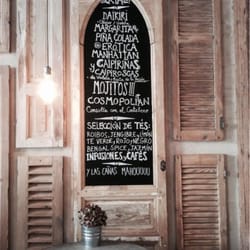 DAIKIRI
MARGARITA
PIÑA COLADA
EROTICA
MANHATTAN
CAIPIRIÑAS
y CAIPIROSCAS
MOJITOS!!!
COSMOPOLITAN
Consulta con el Coctelero
SELECCIÓN DE TÉS:
ROIBOS, JENGIBRE y LIMÓN
TE VERDE, ROJO y NEGRO
BENGAL SPICE, JAZMIN
INFUSIONES y CAFÉS
Y LAS CAÑAS MAHOUUUU